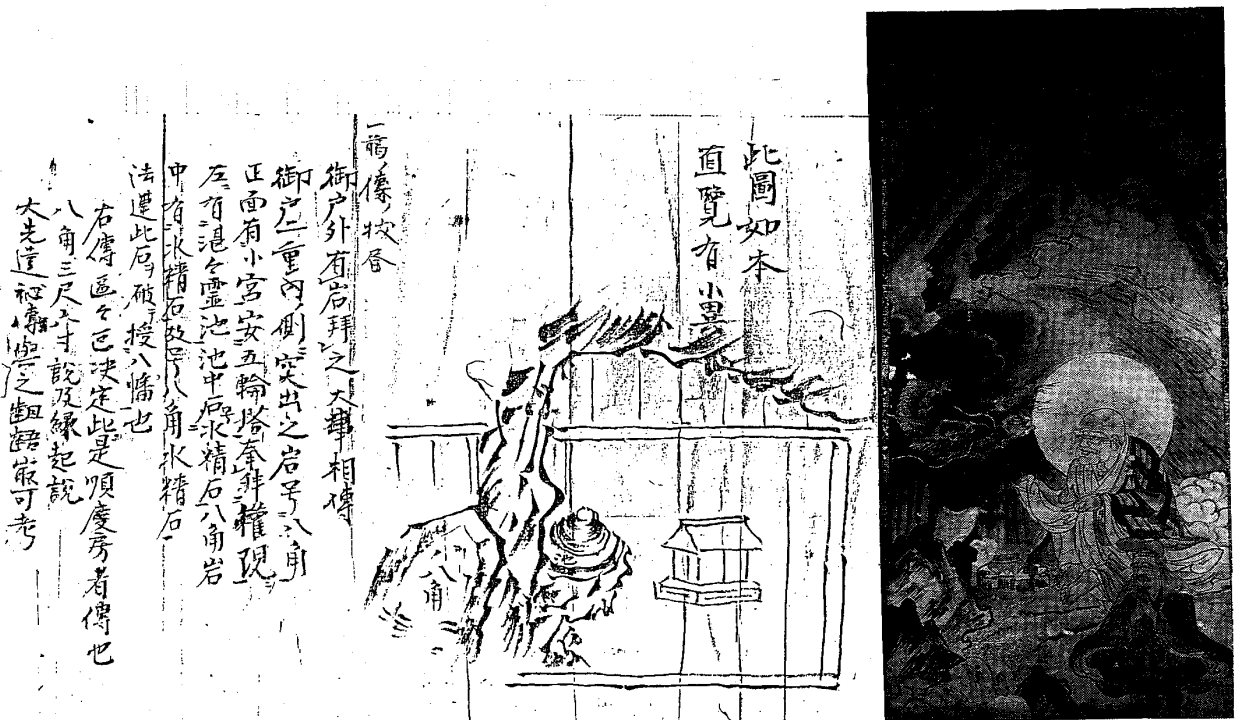 此圖如本
直覽有小異
八角
一 傳 授 㫺
御户外有岩拜之大事相傳
御户二重内側ニ突出之岩号八角
正面有小宮安五輪塔奉拜權現
左ニ有湛々霊池池中石水精石八角岩
中ニ有水精石故号八角水精石
法蓮此石ヲ破テ授八幡也
右傳區々已決定此是順慶房者傳也
八角三尺八寸説及縁起説
大先達 傳與之齟齬最可考